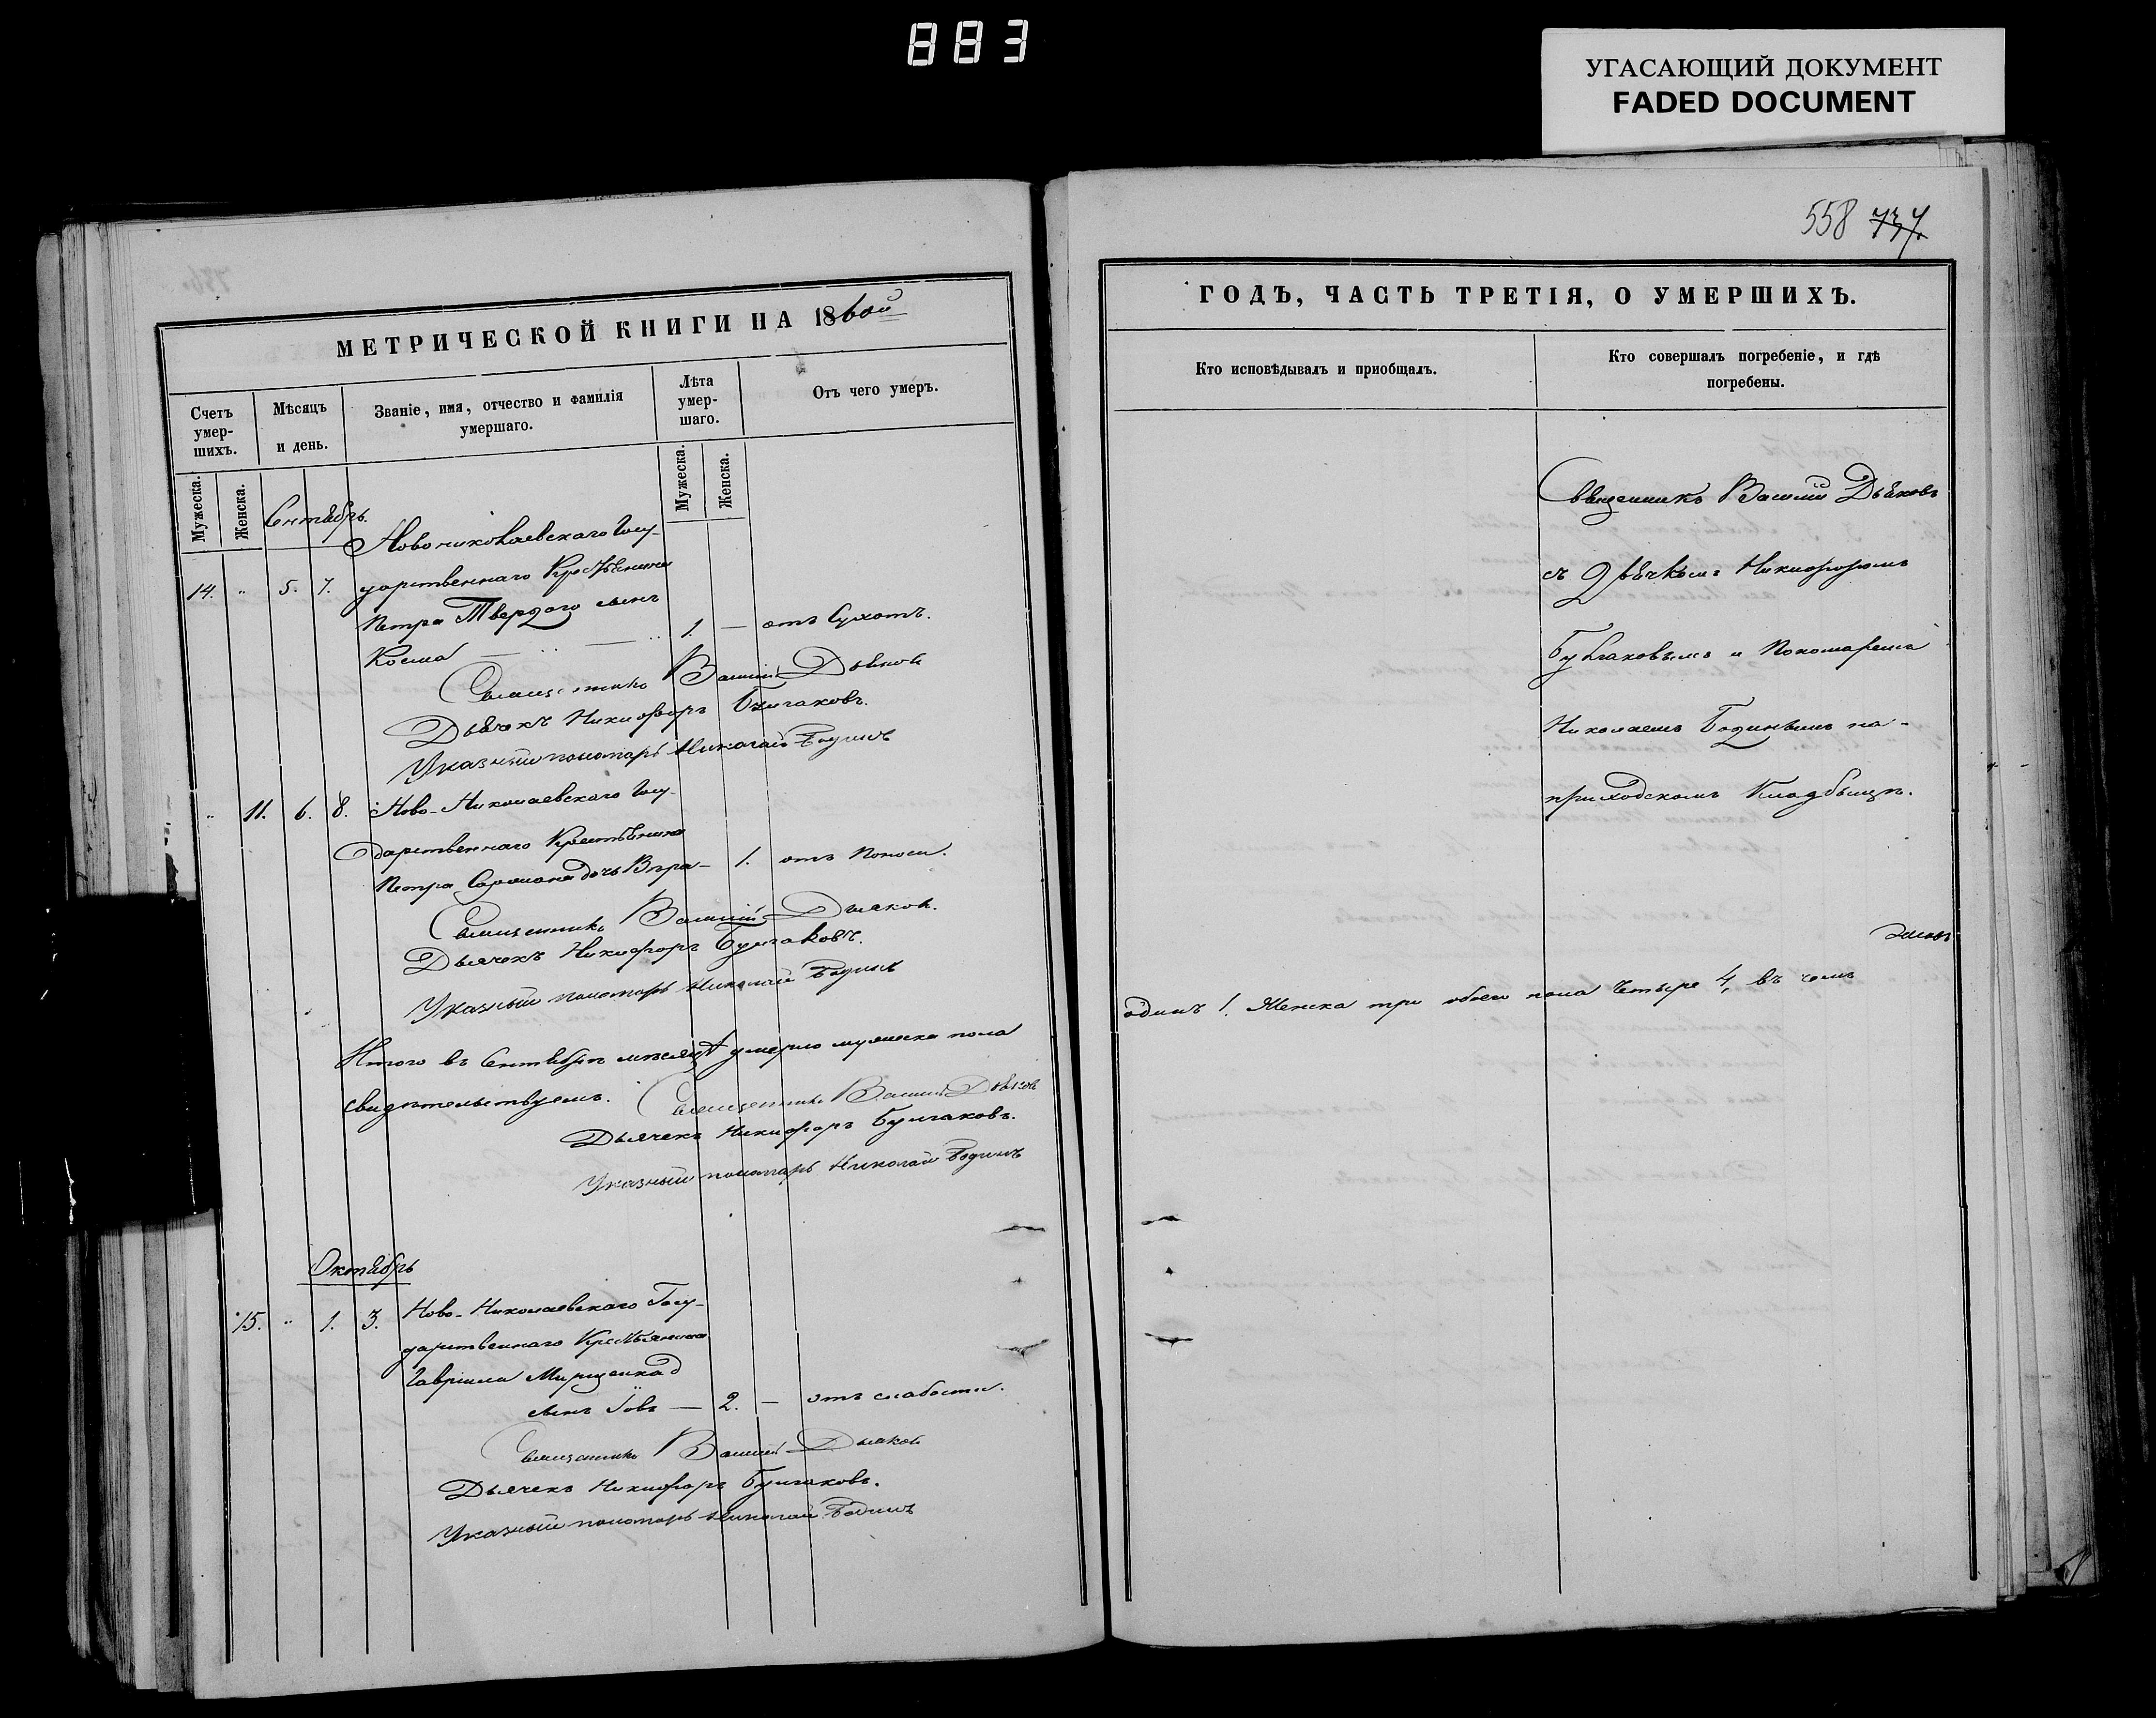 883
УГАСАЮЩИЙ ДОКУМЕНТ
FADED DOCUMENT
МЕТРИЧЕСКОЙ КНИГИ НА 1860й
Счетъ умер-шихъ.
Мѣсяцъ и день.
Званіе, имя, отчество и фамилія умершаго.
Лѣта умер-шаго.
Отъ чего умеръ.
Мужеска.
Женска.
Мужеска.
Женска.
Сентябрь.
Новониколаевскаго Госу-
14. " 5. 7. дарственнаго Крестьянина
Петра Твердаго сынъ
Косма — " — " 1. — отъ Сухотъ.
Священникъ Василій Дьяков
Дьячекъ Никифоръ Булгаковъ.
Указный пономарь Николай Бодинъ
" 11. 6. 8. Ново-Николаевскаго Госу-
дарственнаго Крестьянина
Петра дочь Вѣра — 1. отъ Поноса.
Священникъ Василій Дьяков.
Дьячекъ Никифоръ Булгаковъ.
Указный пономарь Николай Бодинъ
Итого въ Сентябрѣ мѣсяцѣ умерло мужеска пола
свидѣтельствуемъ.
Священникъ Василій Дьяков
Дьячекъ Никифоръ Булгаковъ.
Указный пономарь Николай Бодинъ
Октябрь
15. " 1. 3. Ново-Николаевскаго Госу-
дарственнаго Крестьянина
Гавріила
сынъ Іовъ — 2. — отъ слабости.
Священникъ Василій Дьяков
Дьячекъ Никифоръ Булгаковъ.
Указный пономарь Николай Бодинъ
558 737.
ГОДЪ, ЧАСТЬ ТРЕТІЯ, О УМЕРШИХЪ.
Кто исповѣдывалъ и приобщалъ.
Кто совершалъ погребеніе, и гдѣ погребены.
Священникъ Василій Дьяковъ
съ Дьячкомъ Никифоромъ
Булгаковымъ и Пономаремъ
Николаемъ Бодинымъ на-
приходскомъ Кладбыщѣ.
одинъ 1. Женска три обоего пола Четыре 4, въ чемъ